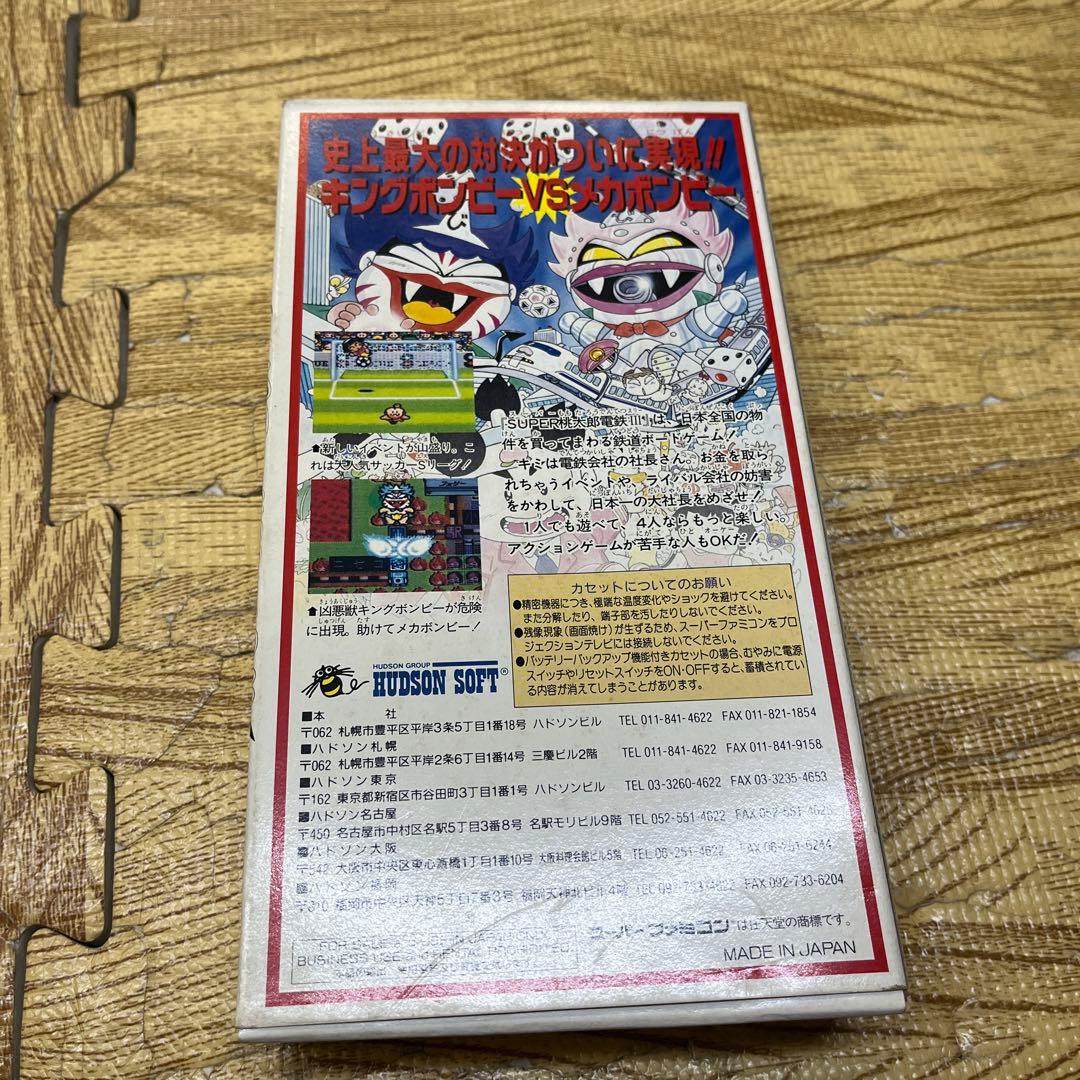 史上最大の対決がついに実現!!
キングボンビーVSメカボンビー
び
「SUPER桃太郎電鉄III」は、日本全国の物
件を買ってまわる鉄道ボードゲーム!
キミは電鉄会社の社長さん。お金を取ら
れちゃうイベントや、ライバル会社の妨害
をかわして、日本一の大社長をめざせ!
1人でも遊べて、4人ならもっと楽しい。
アクションゲームが苦手な人もOKだ!
⬆新しいイベントが山盛り。こ
れは大人気サッカーSリーグ!
⬆凶悪獣キングボンビーが危険
に出現。助けてメカボンビー!
カセットについてのお願い
●精密機器につき、極端な温度変化やショックを避けてください。
また分解したり、端子部を汚したりしないでください。
●残像現象(画面焼け)が生ずるため、スーパーファミコンをプロ
ジェクションテレビには接続しないでください。
●バッテリーバックアップ機能付きカセットの場合、むやみに電源
スイッチやリセットスイッチをON・OFFすると、蓄積されてい
る内容が消えてしまうことがあります。
HUDSON GROUP
HUDSON SOFT®
■本 社
〒062 札幌市豊平区平岸3条5丁目1番18号 ハドソンビル TEL 011-841-4622 FAX 011-821-1854
■ハドソン札幌
〒062 札幌市豊平区平岸2条6丁目1番14号 三慶ビル2階 TEL 011-841-4622 FAX 011-841-9158
■ハドソン東京
〒162 東京都新宿区市谷田町3丁目1番1号 ハドソンビル TEL 03-3260-4622 FAX 03-3235-4653
■ハドソン名古屋
〒450 名古屋市中村区名駅5丁目3番8号 名駅モリビル9階 TEL 052-551-4622 FAX 052-551-4625
■ハドソン大阪
〒542 大阪市中央区東心斎橋1丁目1番10号 大阪料理会館ビル5階 TEL 06-251-4622 FAX 06-251-6244
■ハドソン福岡
〒810 福岡市中央区天神5丁目7番3号 福岡天神北ビル4階 TEL 092-733-4622 FAX 092-733-6204
スーパーファミコンは任天堂の商標です。
MADE IN JAPAN